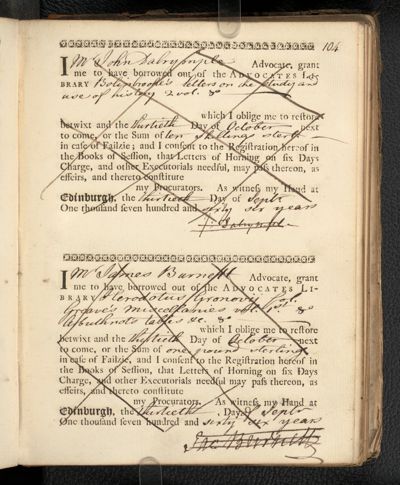 104
I Mr John Dalrymple Advocate, grant
me to have borrowed out of the ADVOCATES LI-
BRARY Bolinbrooke's letters on the study and
use of history 2 vol. 8o
which I oblige me to restore
betwixt and the thirtieth Day of October next
to come, or the Sum of ten shillings sterling
in case of Failzie; and I consent to the Registration hereof in
the Books of Session, that Letters of Horning on six Days
Charge, and other Executorials needful, may pass thereon, as
effeirs, and thereto constitute
my Procurators. As witness my Hand at
Edinburgh, the thirtieth Day of Septr
One thousand seven hundred and sixty six years
J: Dalrymple.
I Mr James Burnett Advocate, grant
me to have borrowed out of the ADVOCATES LI-
BRARY Herodotus Gronovij fol.
Graves miscellanies vol. 1st. 8o
Arbuthnots tables &c. 8o
which I oblige me to restore
betwixt and the thirtieth Day of October next
to come, or the Sum of one pound sterling
in case of Failzie, and I consent to the Registration hereof in
the Books of Session, that Letters of Horning on six Days
Charge, and other Executorials needful may pass thereon, as
effeirs, and thereto constitute
my Procurators. As witness my Hand at
Edinburgh, the thirtieth Day of Septr
One thousand seven hundred and sixty six years
Jas Burnett